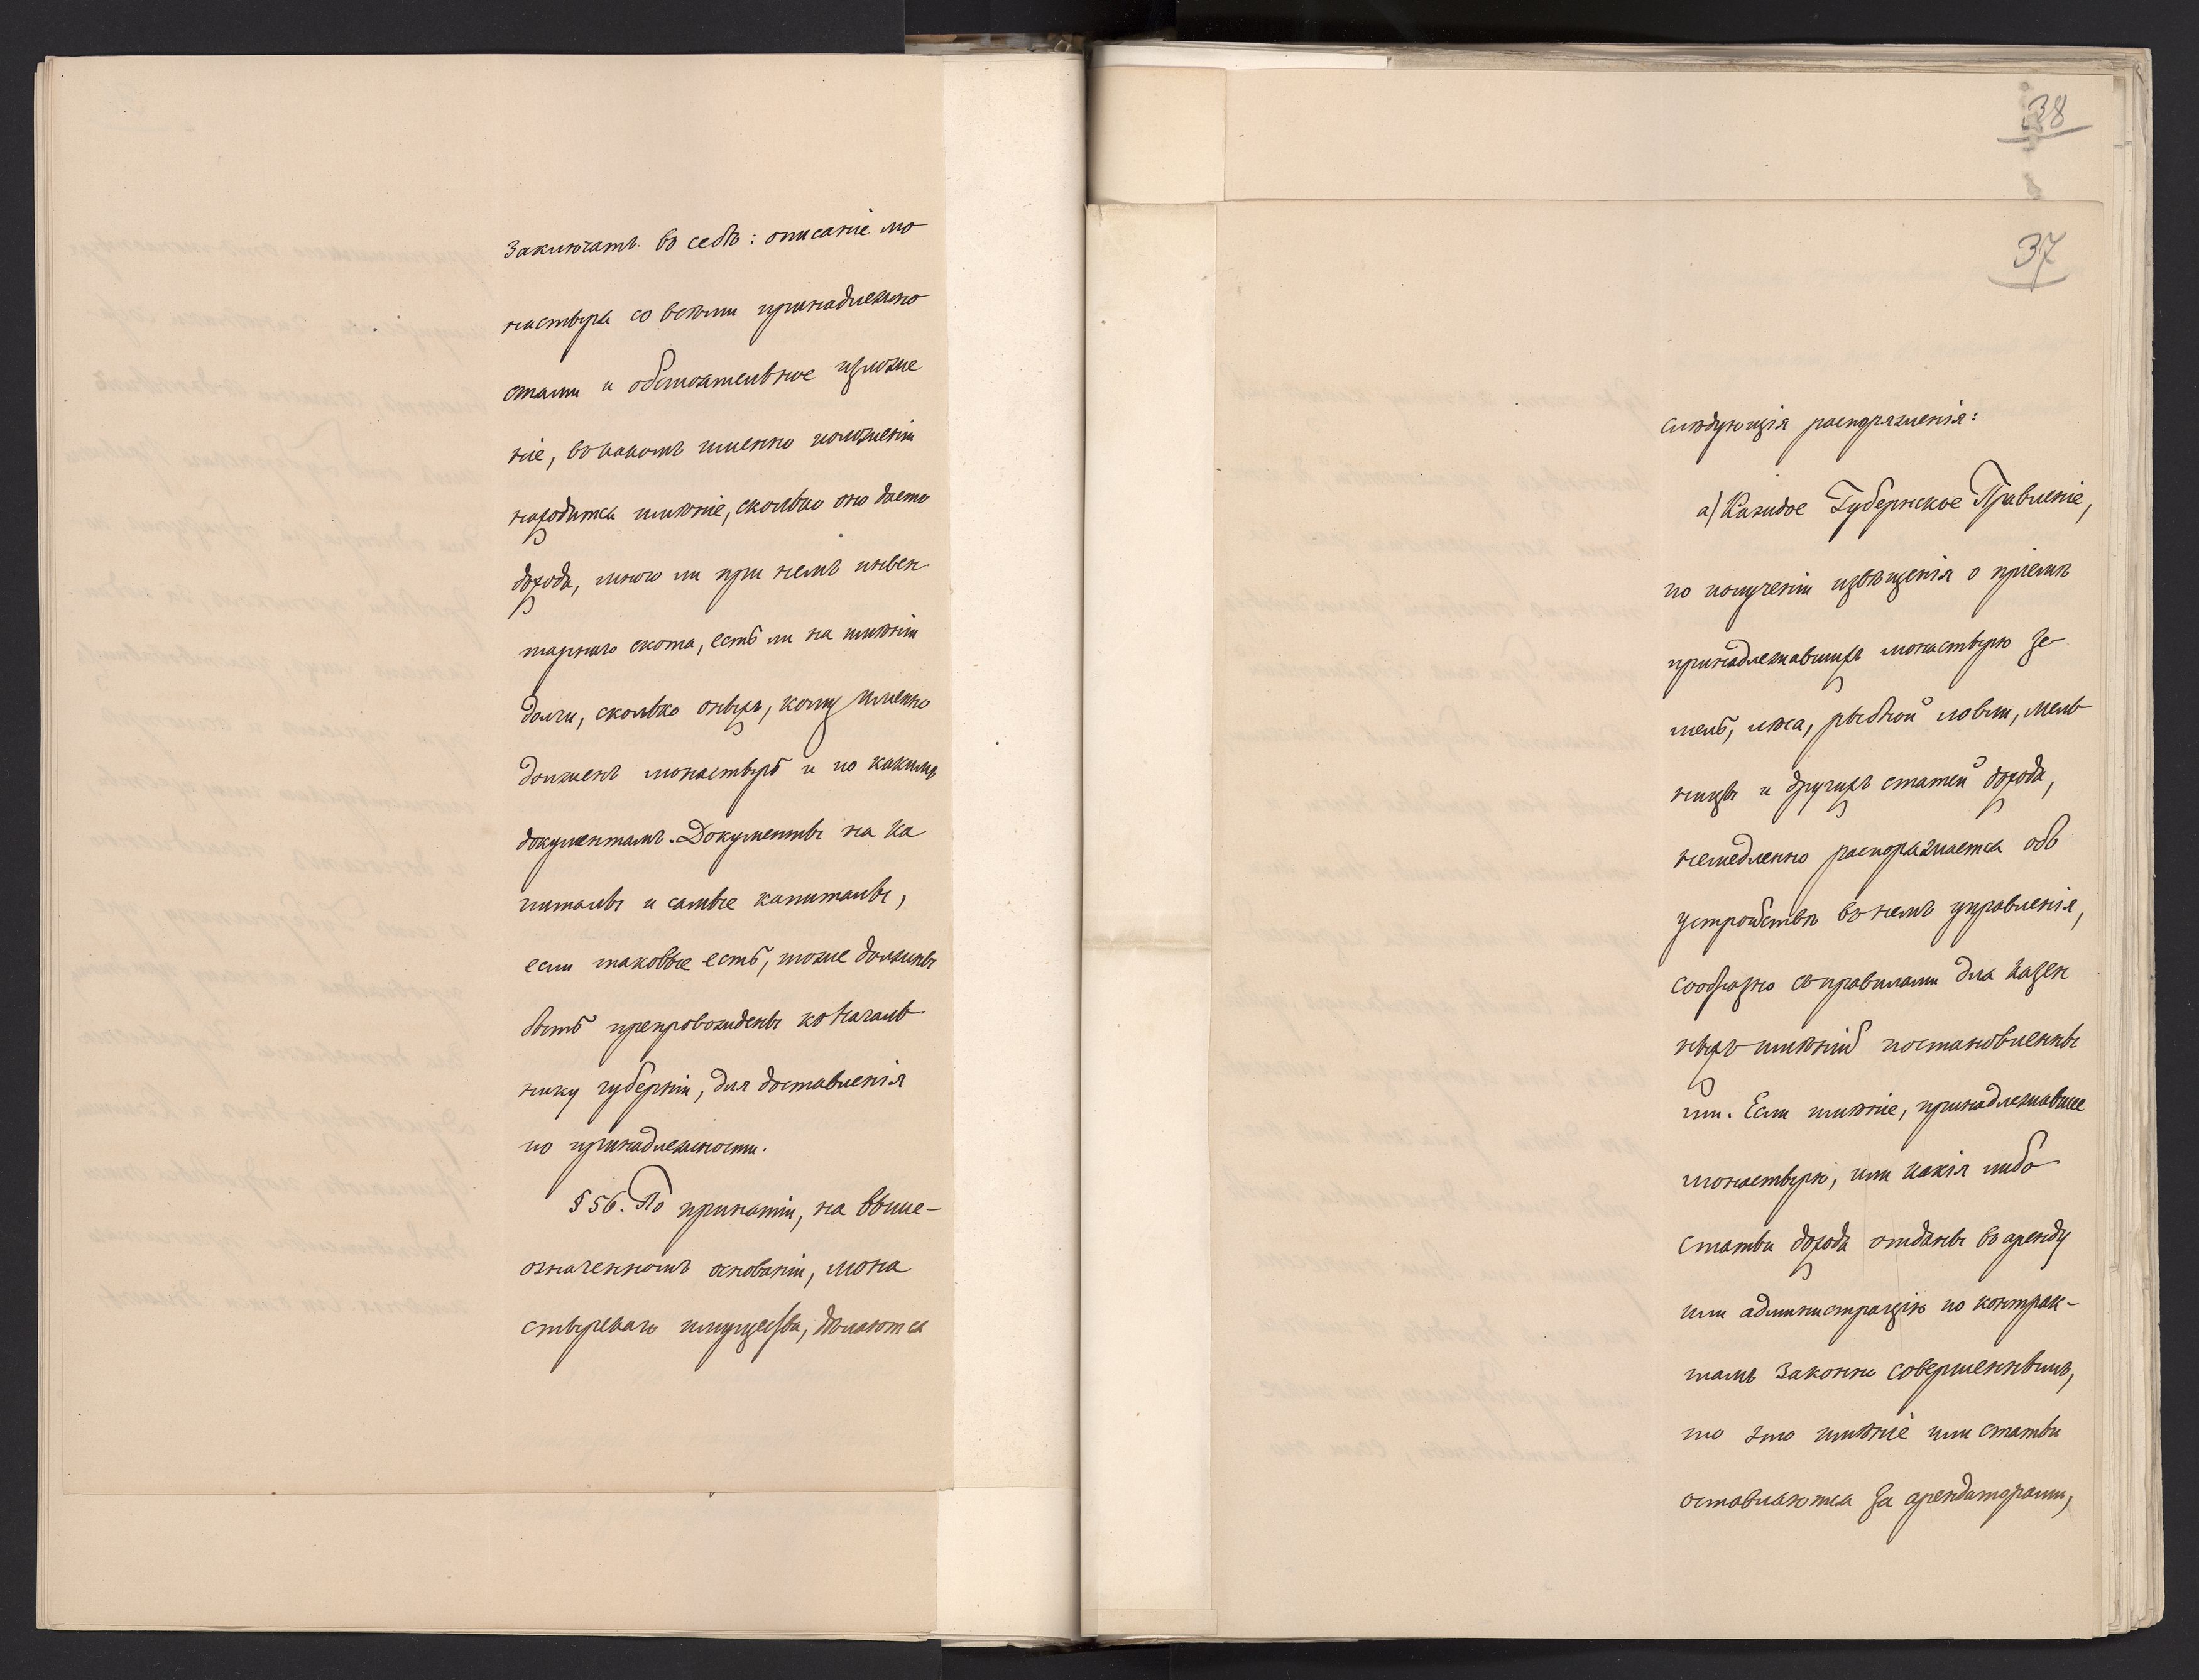 заключать въ себѣ: описаніе мо
настыря со всѣми принадлежно
стями и обстоятельное изложе
ніе, въ какомъ именно положеніи
находится имѣніе, сколько оно даетъ
дохода, много ли при немъ инвен
тарнаго скота, есть ли на имѣніи
долги, сколько оныхъ, кому именно
долженъ монастырь и по какимъ
документамъ. Документы на ка
питалы и самые капиталы,
если таковые есть, тоже должны
быть препровождены къ началь
нику губерніи, для доставленія
по принадлежности.
§ 56. По принятіи, на выше-
означенномъ основаніи, мона
стырскаго имущества, дѣлаются
38
37
слѣдующія распоряженія:
а) Каждое Губернское Правленіе,
по полученіи извѣщенія о пріемѣ
принадлежавшихъ монастырю зе-
мель, лѣса, рыбной ловли, мель
ницы и другихъ статей дохода,
немедленно распоряжается объ
устройствѣ въ немъ управленія,
сообразно съ правилами для казен
ныхъ имѣній постановленны
ми. Если имѣніе, принадлежавшее
монастырю, или какія либо
статьи дохода отданы въ аренду
или администрацію по контрак-
тамъ законно совершеннымъ,
то это имѣніе или статьи
оставляются за арендаторами,